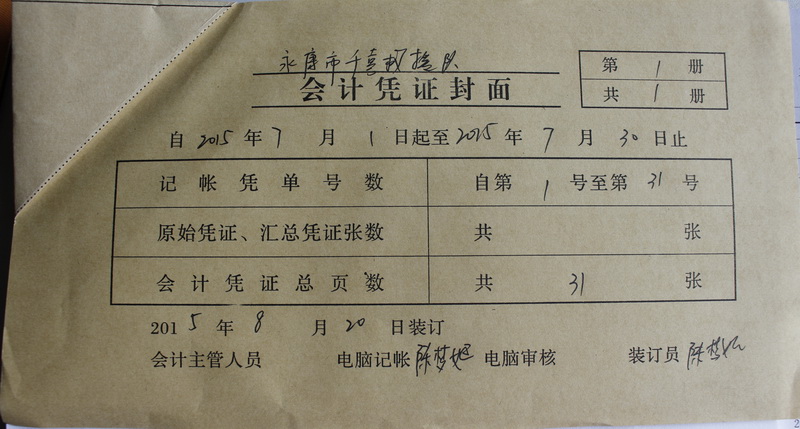 永康市千喜
会计凭证封面
第 1 册
共 1 册
自 2015 年 7 月 1 日起至 2015 年 7 月 30 日止
记帐凭单号数 自第 1 号至第 31 号
原始凭证、汇总凭证张数 共 张
会计凭证总页数 共 31 张
2015 年 8 月 20 日装订
会计主管人员 电脑记帐 陈梦妮 电脑审核 装订员 陈梦妮
2